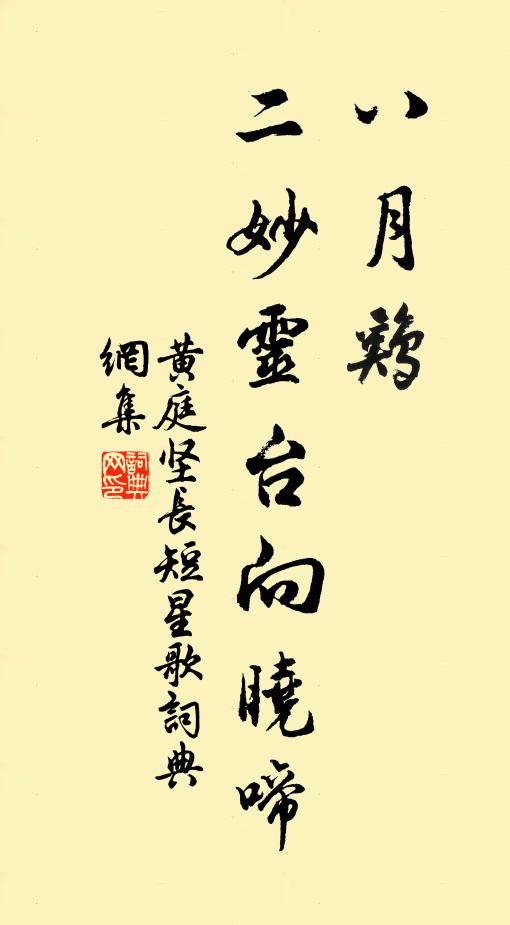 八月鷄
二妙靈台向曉啼
黄庭坚長短星歌詞典
網集
詞典网印